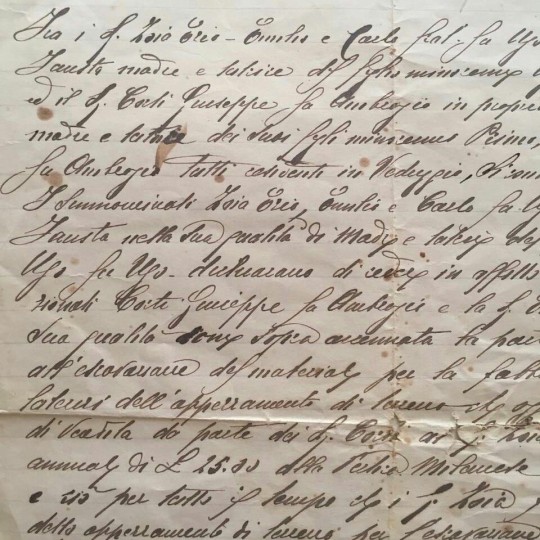 Fra i S. Zoia Ezio - Emilio e Carlo frat. fu Ugo
Fausta madre e tutrice del figlio minorenne
ed il S. Corti Giuseppe fu Ambrogio in propri
madre e tutrice dei suoi figli minorenni Primo,
fu Ambrogio tutti conventi in Vedeggio, si con
I summenzionati Zoia Ezio, Emilio e Carlo fu
Fausta nella sua qualità di Madre e tutrice del
Ugo fu Ugo - dichiarano di cedere in affitto
zionati Corti Giuseppe fu Ambrogio e la S.
sua qualità come sopra accennata la parte
all'escavazione del materiale per la fabb
laterizi dell'appezzamento di terreno
di Vendita da parte dei S. Corti ai S. Zoia
annuale di £ 25.30 alla Pertica Milanese
e ciò per tutto il tempo che i S. Zoia
detto appezzamento di terreno per l'escavazione